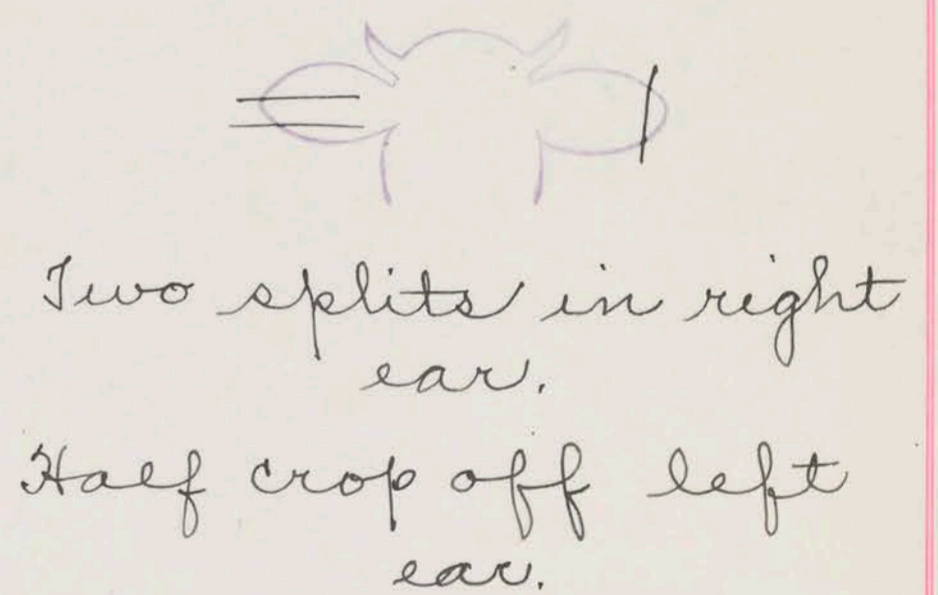 Two splits in right
ear.
Half crop off left
ear.